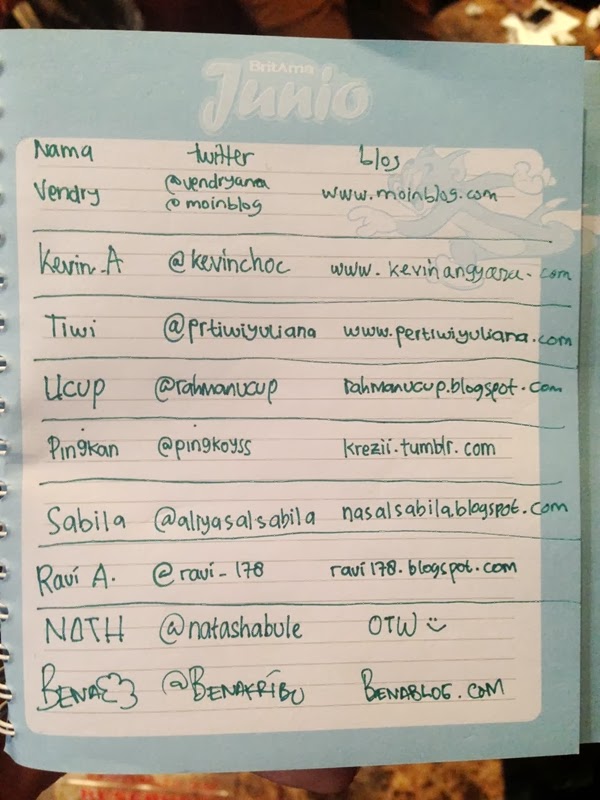 BritAma
Junio
Nama twitter blog
Vendry @vendryana www.moinblog.com
@moinblog
Kevin.A @kevinchoc www.kevinanggara.com
Tiwi @prtiwiyuliana www.pertiwiyuliana.com
Ucup @rahmanucup rahmanucup.blogspot.com
Pingkan @pingkoyss krezii.tumblr.com
Sabila @aliyasalsabila nasalsabila.blogspot.com
Ravi A. @ravi_178 ravi178.blogspot.com
NATH @natashabule OTW
BENA @BENAKRIBU BENABLOG.COM